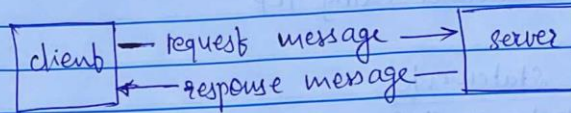 client request message server
response message